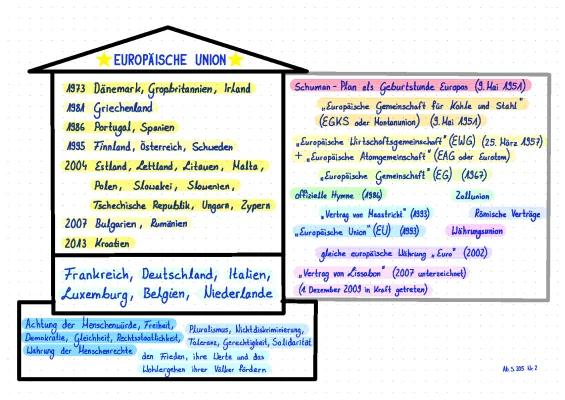 EUROPÄISCHE UNION
1973 Dänemark, Großbritannien, Irland
1981 Griechenland
1986 Portugal, Spanien
1995 Finnland, Österreich, Schweden
2004 Estland, Lettland, Litauen, Malta,
Polen, Slowakei, Slowenien,
Tschechische Republik, Ungarn, Zypern
2007 Bulgarien, Rumänien
2013 Kroatien
Frankreich, Deutschland, Italien,
Luxemburg, Belgien, Niederlande
Achtung der Menschenwürde, Freiheit,
Demokratie, Gleichheit, Rechtsstaatlichkeit,
Wahrung der Menschenrechte
Pluralismus, Nichtdiskriminierung,
Toleranz, Gerechtigkeit, Solidarität
den Frieden, ihre Werte und das
Wohlergehen ihrer Völker fördern
Schuman-Plan als Geburtstunde Europas (9. Mai 1951)
„Europäische Gemeinschaft für Kohle und Stahl"
(EGKS oder Montanunion) (9. Mai 1951)
„Europäische Wirtschaftsgemeinschaft" (EWG) (25. März 1957)
+ „Europäische Atomgemeinschaft" (EAG oder Euratom)
„Europäische Gemeinschaft" (EG) (1967)
offizielle Hymne (1986)
Zollunion
„Vertrag von Maastricht" (1993)
Römische Verträge
„Europäische Union" (EU) (1993)
Währungsunion
gleiche europäische Währung „Euro" (2002)
„Vertrag von Lissabon" (2007 unterzeichnet)
(1 Dezember 2009 in Kraft getreten)
Ab S. 205 Nr. 2